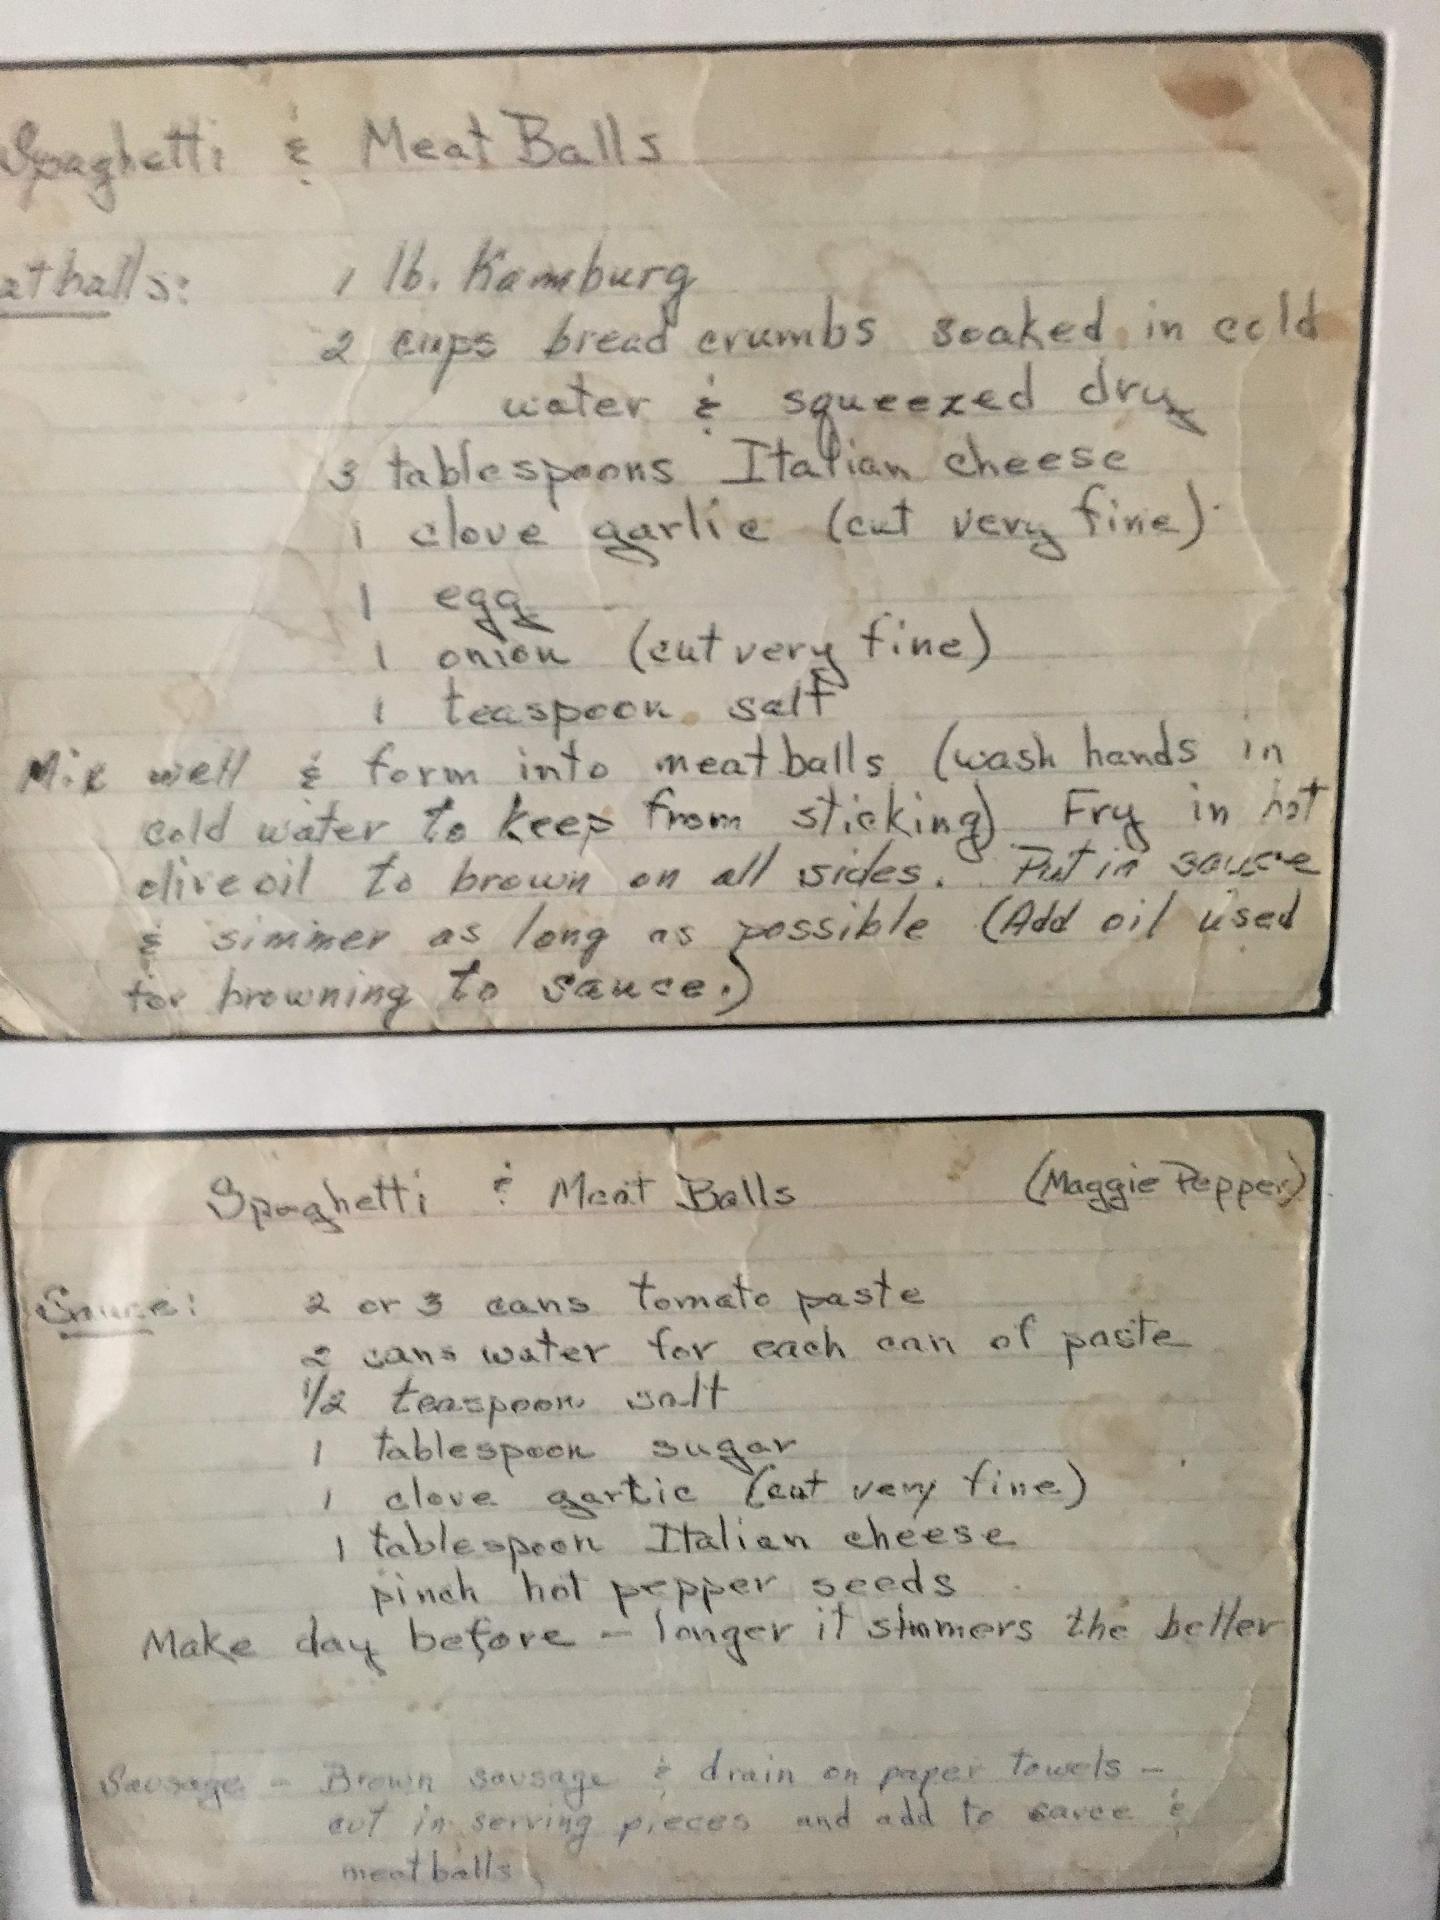 Spaghetti & Meat Balls
atballs: 1 lb. Hamburg
2 cups bread crumbs soaked in cold
water & squeezed dry
3 tablespoons Italian cheese
1 clove garlic (cut very fine)
1 egg
1 onion (cut very fine)
1 teaspoon salt
Mix well & form into meatballs (wash hands in
cold water to keep from sticking) Fry in hot
olive oil to brown on all sides. Put in sauce
& simmer as long as possible (Add oil used
for browning to sauce.)
Spaghetti & Meat Balls (Maggie Pepper)
Sauce: 2 or 3 cans tomato paste
2 cans water for each can of paste
1/2 teaspoon salt
1 tablespoon sugar
1 clove garlic (cut very fine)
1 tablespoon Italian cheese
pinch hot pepper seeds
Make day before - longer it simmers the better
Sausage - Brown sausage & drain on paper towels -
cut in serving pieces and add to sauce &
meatballs.